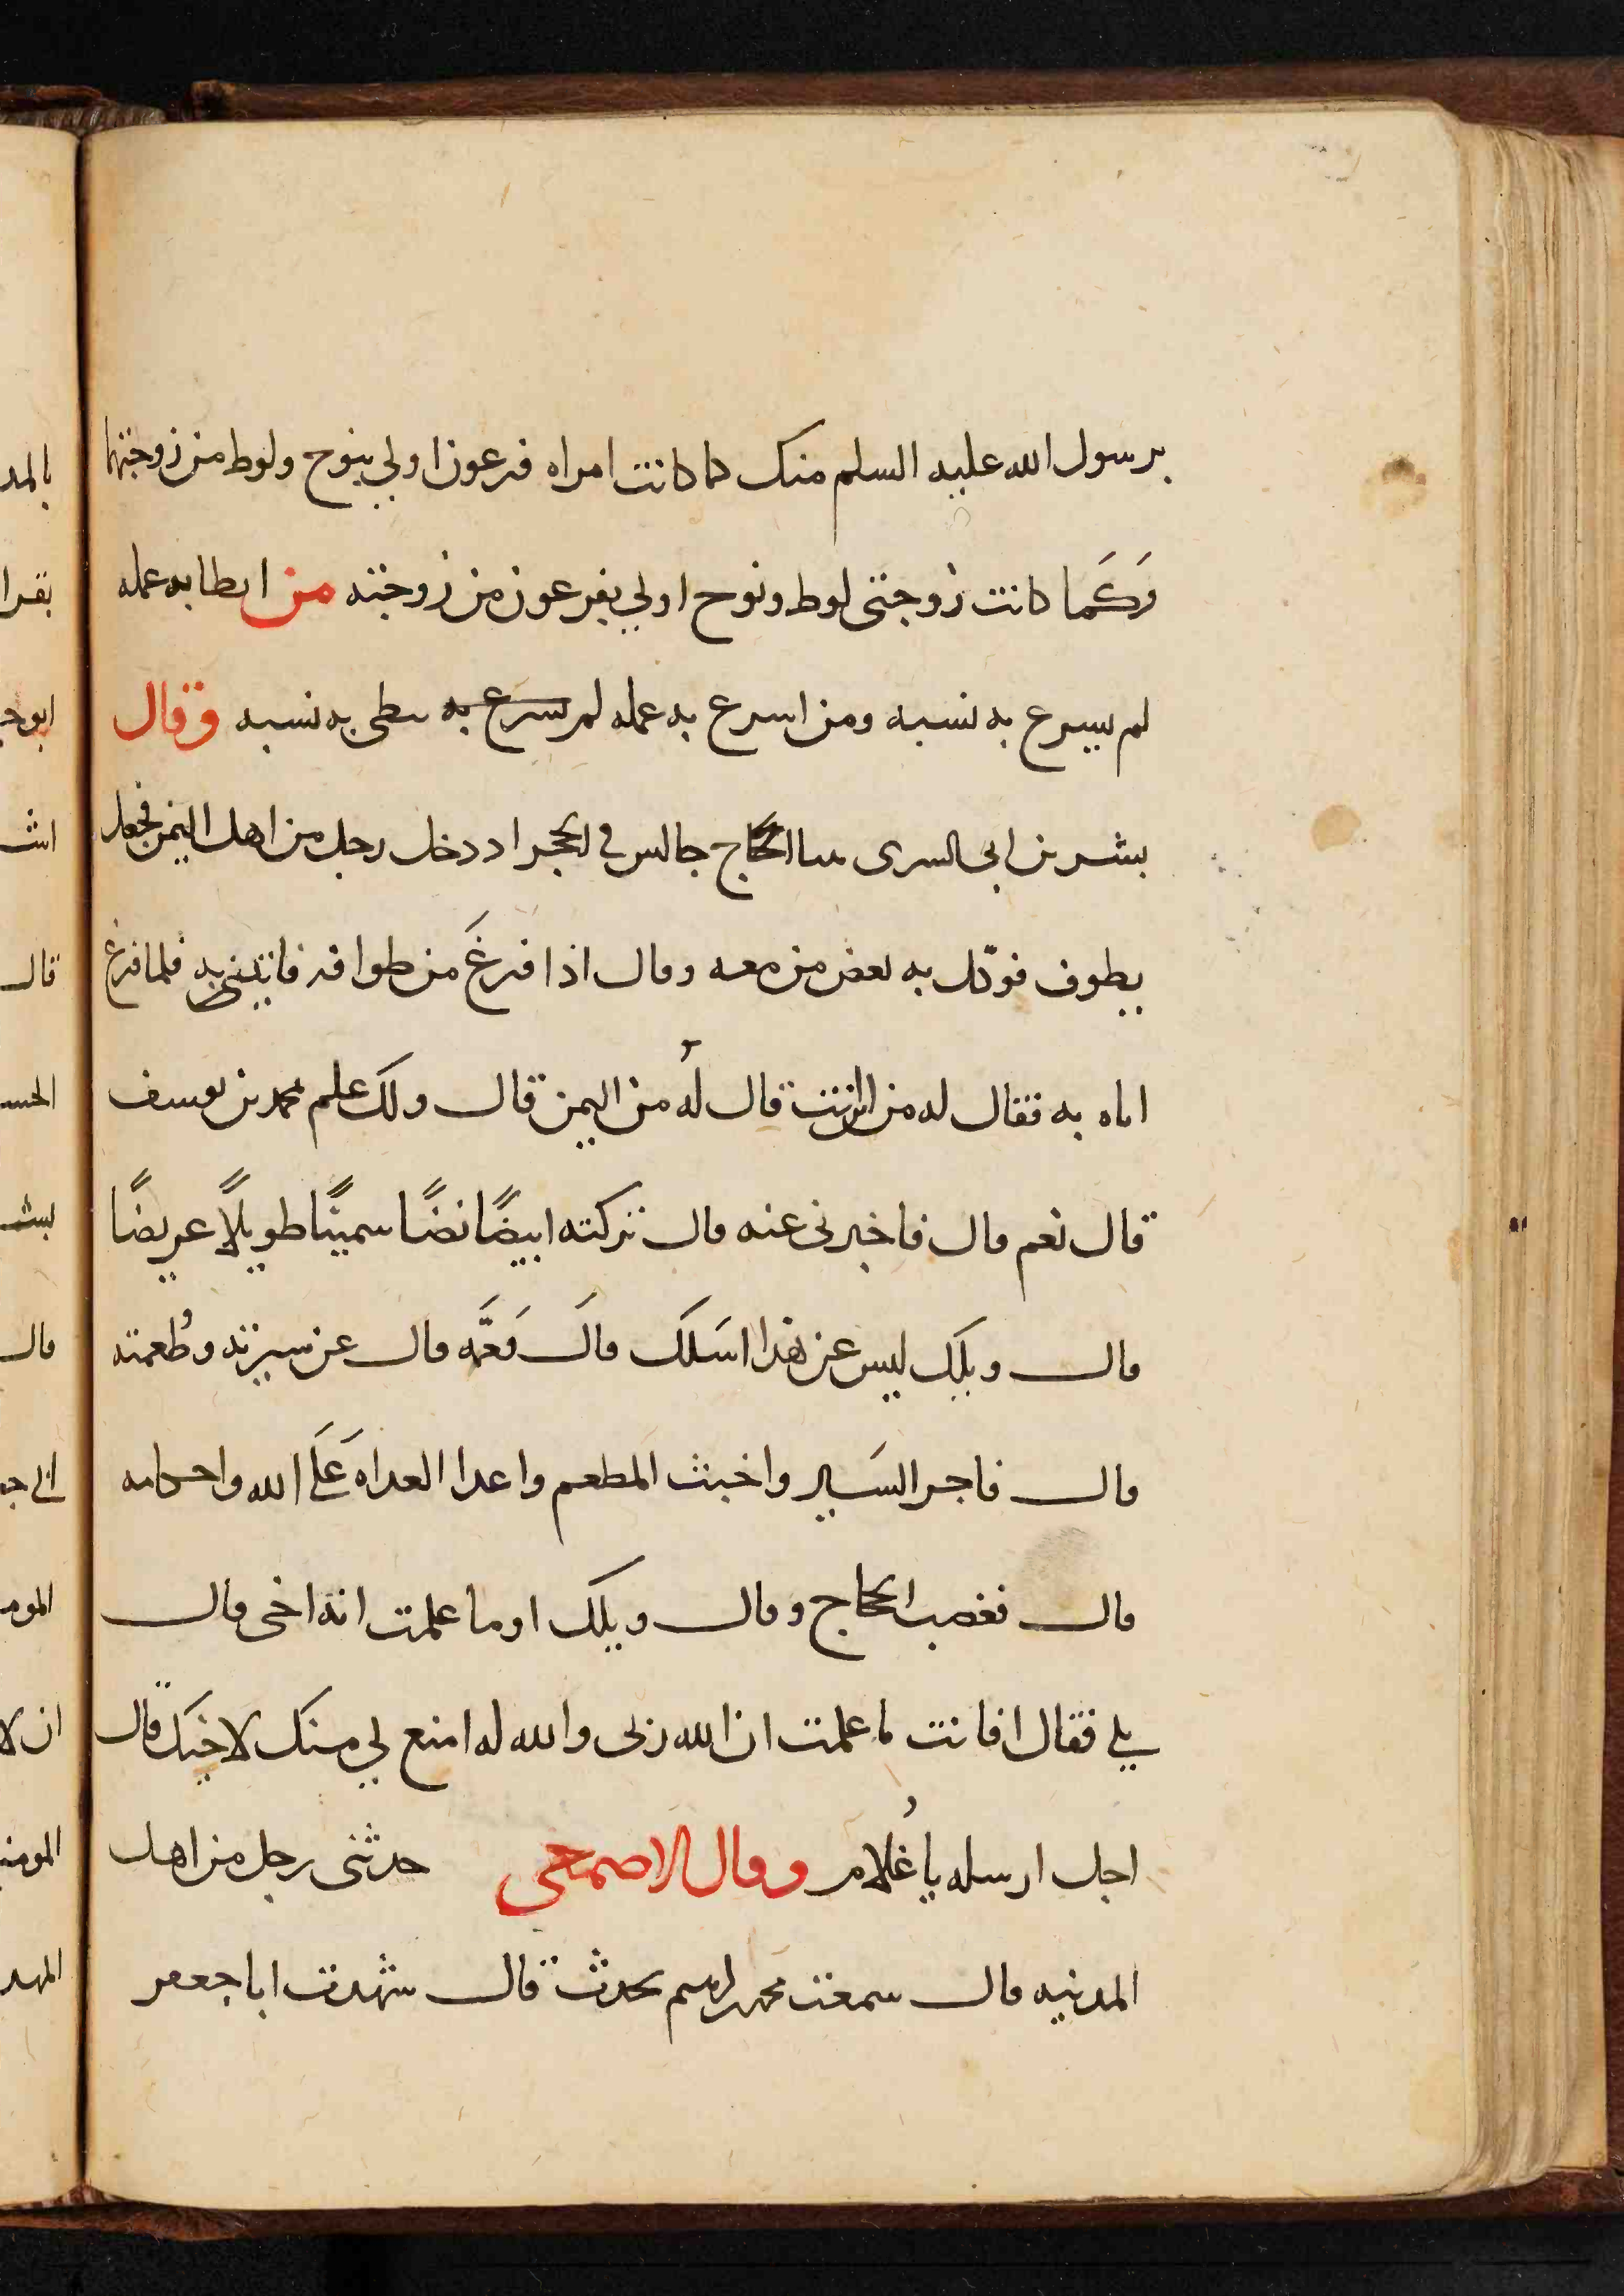 برسول الله عليه السلم منك كما كانت امراه فرعون اولي بنوح ولوط من زوجتهما
وَكَما كانت زوجتى لوط ونوح اولي بفرعون من زوجته من ابطا به عمله
لم يسرع به نسبه ومن اسرع به عمله لم يسرع به يبطى به نسبه وقال
بشر بن ابى السرى بينا الحجاج جالس في الحجر اذ دخل رجل من اهل اليمن فجعل
يطوف فوكّل به بعض من معه وقال اذا فرغَ من طوافه فاتينى به فلما فرغ
اتاه به فقال له من انت قال لُه من اليمن قال ولك علم بمحمد بن يوسف
قال نعم قال فاخبرنى عنه قال تركته ابيضًا نضًا سمينًا طويلًا عريضًا
قال ويلك ليس عن هذا اسَلَك قالَ فَعَمَّه قال عن سيرته وطُعمته
قال فاجر السَير واخبث المطعم واعدا العداه عَلَي الله واحكامه
قال فغضب الحجاج وقال ويلك اوما علمت انه اخى قال
بلي فقال افانت ما علمت ان الله ربى والله له امنع لي منك لاخيك قال
اجل ارسله يا غُلام وقال الاصمعى حدثنى رجل من اهل
المدنيه قال سمعت محمد بن ابرهيم يحدث قال شهدت ابا جعفر
بالمد
بقرا
ابو
قال
الحسـ
قال
المو
ان لا
المهد